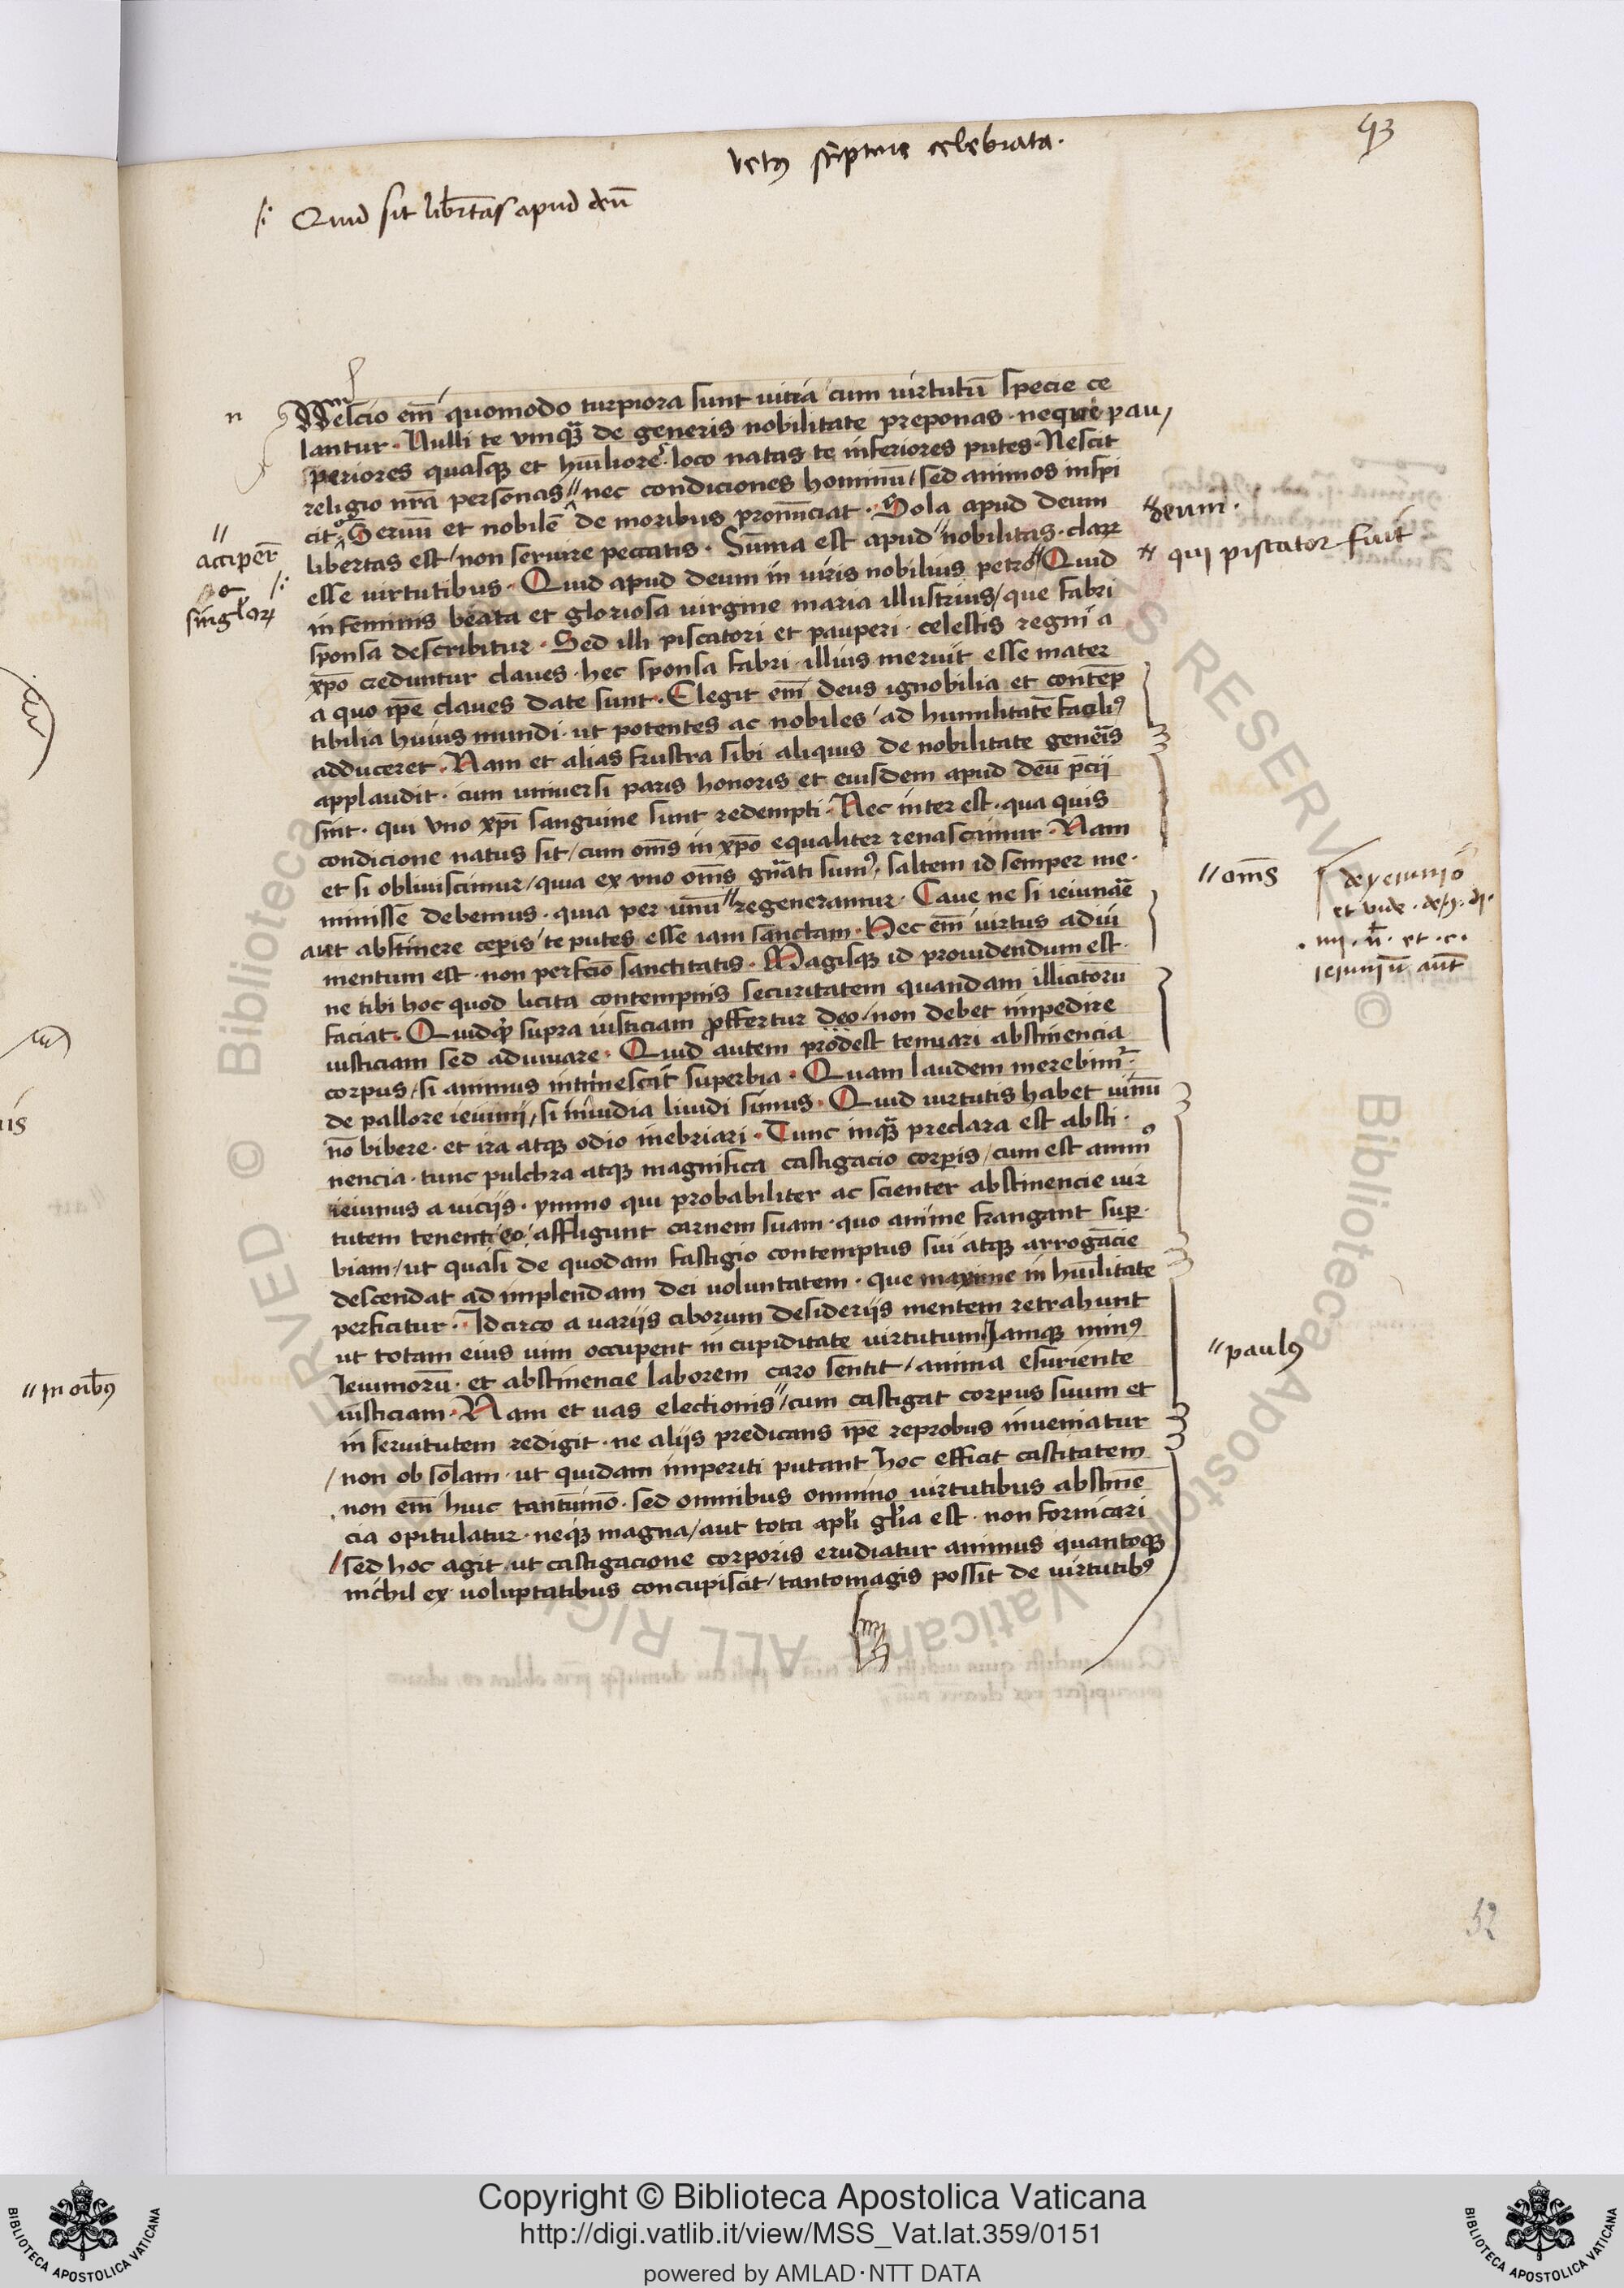 93
vetꝯ scripture celebrata.
Quid sit lib̅rtas apud deū
Nescio em̅ quomodo turpiora sunt uitia cum uirtutū specie ce
lantur. Nulli te vmqꝫ de generis nobilitate preponas. neque pau
periores quasqꝫ et hūiliore loco natas te inferiores putes. Nescit
religio nr̅a personas // nec condiciones hominū / sed animos inspi
cit. Seruū et nobilē de moribus pronūciat. Sola apud deum
libertas est / non seruire peccatis. Sūma est apud // nobilitas. clarꝫ
esse uirtutibus. Quid apud deum in uiris nobilius petro // Quid
in feminis beata et gloriosa uirgine maria illustrius / que fabri
sponsa describitur. Sed illi piscatori et pauperi. celestis regni a
xp̅o creduntur claues. hec sponsa fabri. illius meruit esse mater
a quo ip̅e claues date sunt. Elegit em̅ deus ignobilia et contēp
tibilia huius mundi. ut potentes ac nobiles ad humilitatē faciliꝰ
adduceret. Nam et alias frustra sibi aliquis de nobilitate gene̅is
applaudit. cum uniuersi paris honoris et eiusdem apud deū p̅cii
sint. qui vno xp̅i sanguine sunt redempti. Nec inter est. qua quis
condicione natus sit / cum om̅s in xp̅o equaliter renascimur. Nam
et si obliuiscimur / quia ex vno om̅s gn̅ati sumꝰ. saltem id semper me.
minissē debemus. quia per unū // regeneramur. Caue ne si ieiunāe
aut abstinere ceperis te putes esse iam sanctam. Hec em̅ uirtus adiu
mentum est. non perfcio̅ sanctitatis. Magisqꝫ id prouidendum est.
ne tibi hoc quod licita contempnis securitatem quandam illicitorū
faciat. Quidqꝫ supra iusticiam ꝓffertur deo. non debet impedire
iusticiam sed adiuuare. Quid autem prodest tenuari abstinencia
corpus / si animus intumescat superbia. Quam laudem merebimr̅.
de pallore ieiunii / si inuidia liuidi simus. Quid uirtutis habet uinū
nō bibere. et ira atqꝫ odio inebriari. Tunc inqꝫ preclara est absti.
nencia. tunc pulchra atqꝫ magnifica castigacio corpis / cum est animꝰ
ieiunus a uicijs. ymmo qui probabiliter ac scienter abstinencie uir
tutem tenent eo affligunt carnem suam. quo anime frangant suꝑ.
biam / ut quasi de quodam fastigio contemptus sui atqꝫ arrogācie
descendat ad implendam dei uoluntatem. que maxime in hūilitate
perficitur. Idcirco a uariis ciborum desiderijs mentem retrahunt
ut totam eius uim occupent in cupiditate uirtutum Jamqꝫ minꝰ
Ieiuniorū. et abstinencie laborem caro sentit / anima esuriente
iusticiam. Nam et uas electionis // cum castigat corpus suum et
in seruitutem redigit. ne aliis predicans ip̅e reprobus inueniatur
/ non ob solam. ut quidam imperiti putant hoc efficit castitatem
non em̅ huic tantūmō. sed omnibus omnino uirtutibus abstinē
cia opitulatur. neqꝫ magna / aut tota apl̅i gl̅ia est. non fornicari
/ sed hoc agit. ut castigacione corporis erudiatur animus quantoqꝫ
nichil ex uoluptatibus concupiscit / tantomagis possit de uirtutibꝰ
n
// acciper̅
singl̅arꝫ
// deum.
// qui piscator fuit
// om̅s
de yeiunio
et vide
ieiuniū aut̅
// paulꝰ
// in oīb̅ꝰ
52
Copyright © Biblioteca Apostolica Vaticana
http://digi.vatlib.it/view/MSS_Vat.lat.359/0151
powered by AMLAD·NTT DATA
BIBLIOTECA APOSTOLICA VATICANA
BIBLIOTECA APOSTOLICA VATICANA